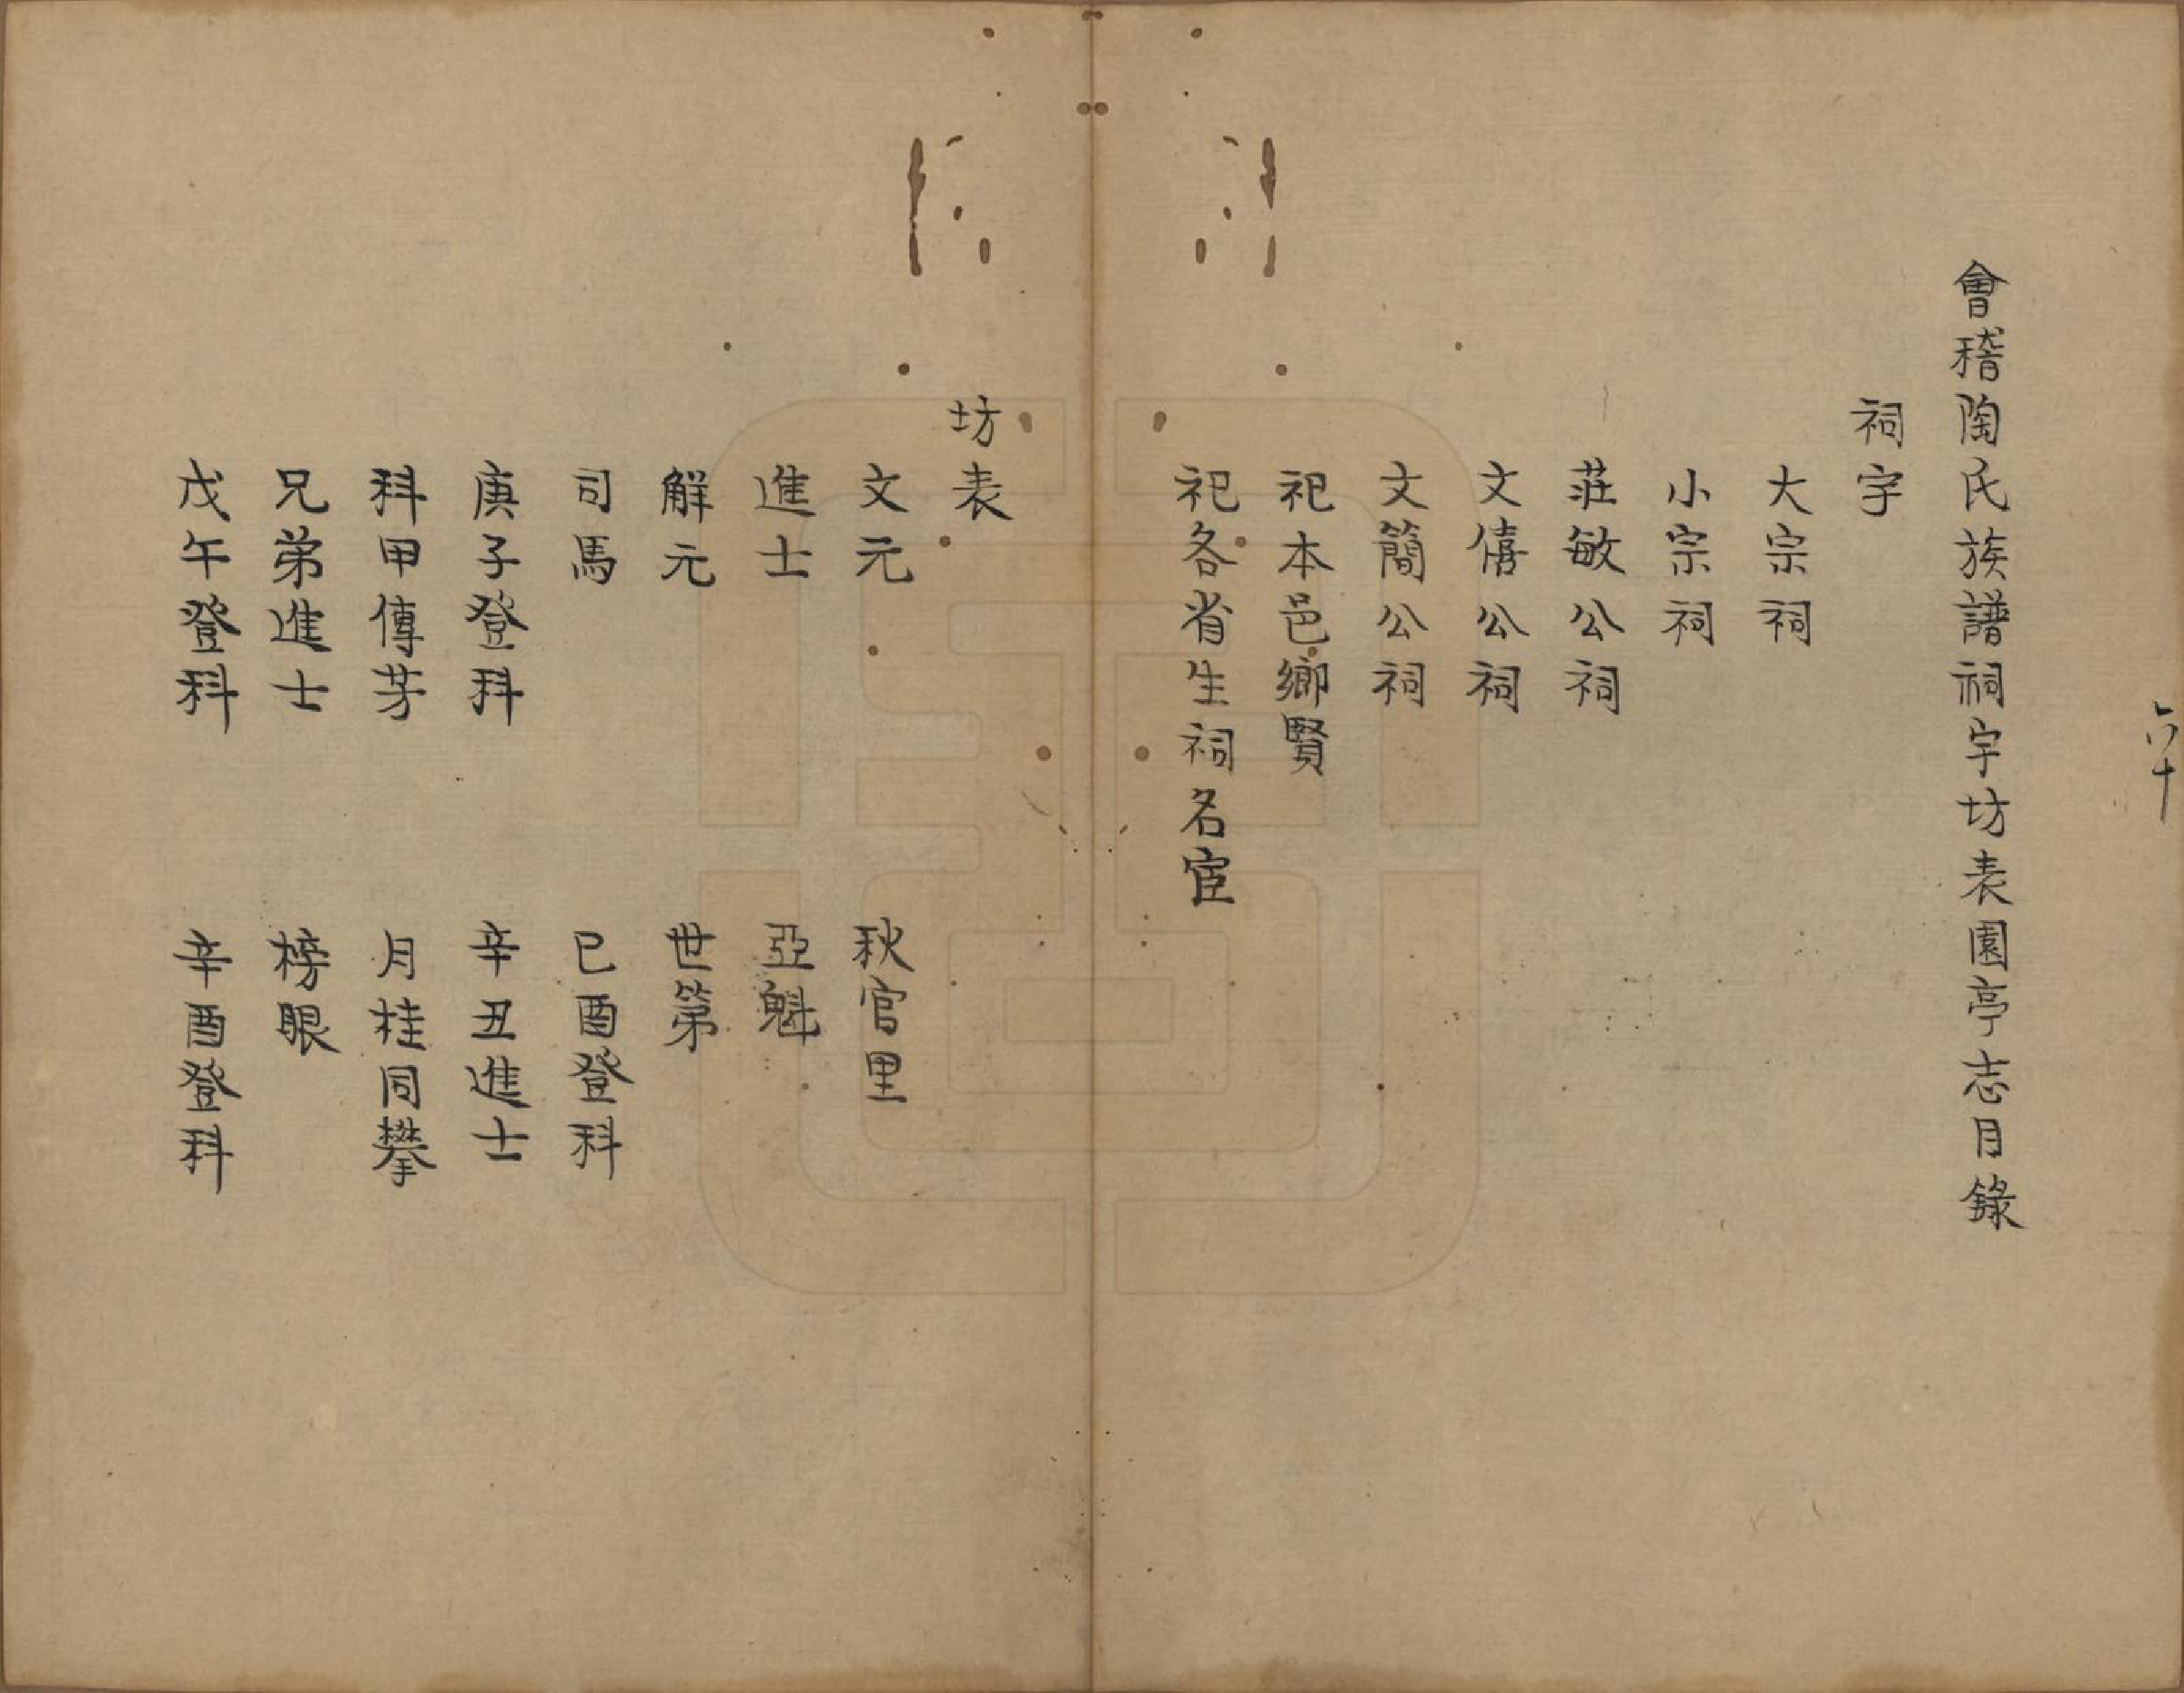 六十
會稽陶氏族譜祠宇坊表園亭志目錄
祠宇
大宗祠
小宗祠
莊敏公祠
文僖公祠
文簡公祠
祀本邑鄉賢
祀各省生祠名宦
坊表
文元　秋官里
進士　亞魁
解元　世第
司馬　已酉登科
庚子登科　辛丑進士
科甲傳芳　月桂同攀
兄弟進士　榜眼
戊午登科　辛酉登科